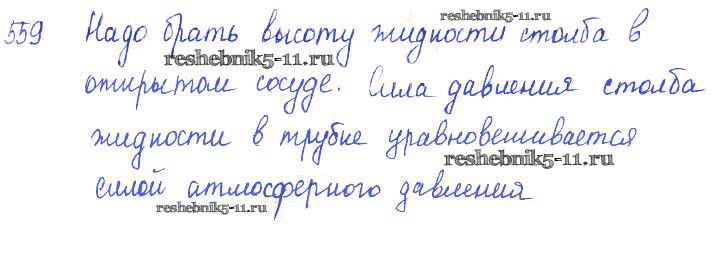 559 Надо брать высоту жидкости столба в
открытом сосуде. Сила давления столба
жидкости в трубке уравновешивается
силой атмосферного давления
reshebnik5-11.ru
reshebnik5-11.ru
reshebnik5-11.ru
reshebnik5-11.ru